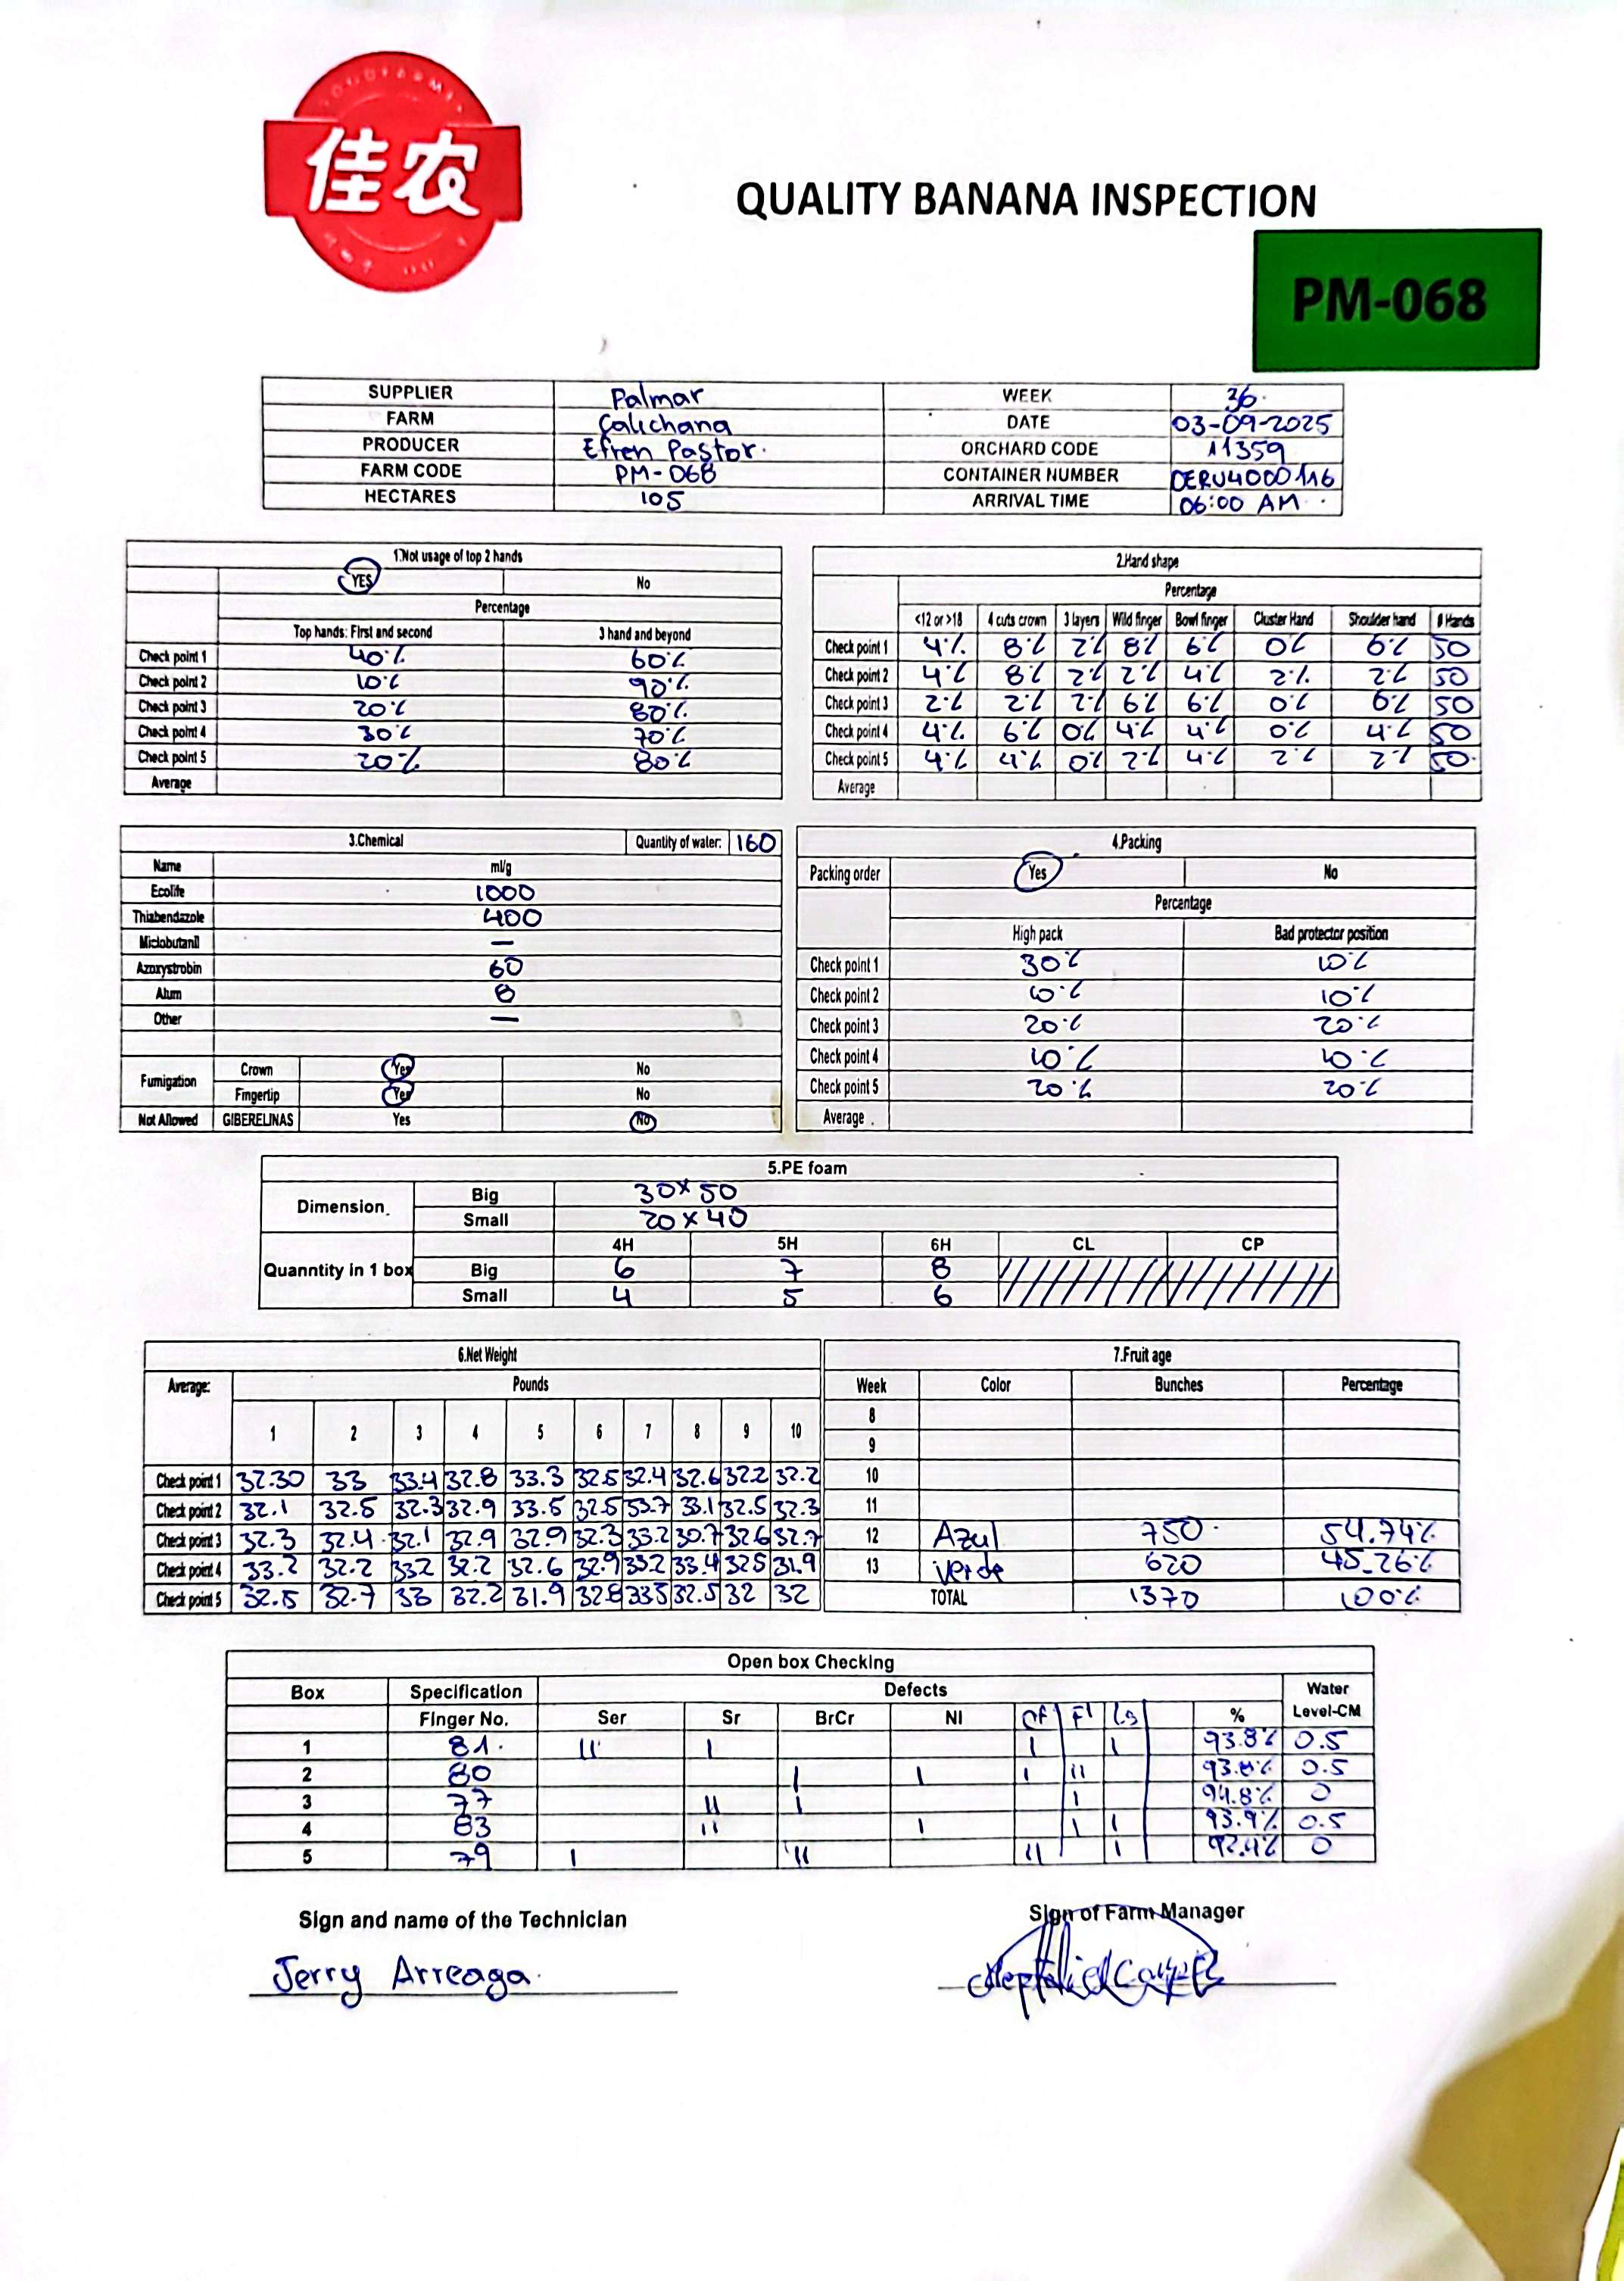 GOODFARMER
佳农
QUALITY BANANA INSPECTION
PM-068
SUPPLIER Palmar WEEK 36.
FARM Calichana DATE 03-09-2025
PRODUCER Efren Pastor. ORCHARD CODE 11359
FARM CODE PM-068 CONTAINER NUMBER DERU4000116
HECTARES 105 ARRIVAL TIME 06:00 AM
1.Not usage of top 2 hands
YES No
Percentage
Top hands: First and second 3 hand and beyond
Check point 1 40% 60%
Check point 2 10% 90%
Check point 3 20% 80%
Check point 4 30% 70%
Check point 5 20% 80%
Average
2.Hand shape
Percentage
<12 or >18 4 cuts crown 3 layers Wild finger Bowl finger Cluster Hand Shoulder hand # Hands
Check point 1 4% 8% 2% 8% 6% 0% 6% 50
Check point 2 4% 8% 2% 2% 4% 2% 2% 50
Check point 3 2% 2% 2% 6% 6% 0% 6% 50
Check point 4 4% 6% 0% 4% 4% 0% 4% 50
Check point 5 4% 4% 0% 2% 4% 2% 2% 50.
Average
3.Chemical Quantity of water: 160
Name ml/g
Ecolife 1000
Thiabendazole 400
Miclobutanil —
Azoxystrobin 60
Alum 8
Other —
Fumigation Crown Yes No
Fingertip Yes No
Not Allowed GIBERELINAS Yes No
4.Packing
Packing order Yes No
Percentage
High pack Bad protector position
Check point 1 30% 10%
Check point 2 10% 10%
Check point 3 20% 20%
Check point 4 10% 10%
Check point 5 20% 20%
Average .
5.PE foam
Dimension. Big 30x50
Small 20x40
4H 5H 6H CL CP
Quanntity in 1 box Big 6 7 8
Small 4 5 6
6.Net Weight
Average: Pounds
1 2 3 4 5 6 7 8 9 10
Check point 1 32.30 33 33.4 32.8 33.3 32.5 32.4 32.6 32.2 32.2
Check point 2 32.1 32.5 32.3 32.9 33.5 32.5 33.7 33.1 32.5 32.3
Check point 3 32.3 32.4 32.1 32.9 32.9 32.3 33.2 30.7 32.6 32.7
Check point 4 33.2 32.2 332 32.2 32.6 32.9 332 33.4 325 31.9
Check point 5 32.5 32.7 33 32.2 31.9 32.8 335 32.5 32 32
7.Fruit age
Week Color Bunches Percentage
8
9
10
11
12 Azul 750. 54.74%
13 Verde 620 45.26%
TOTAL 1370 100%
Open box Checking
Box Specification Defects Water
Finger No. Ser Sr BrCr NI Cf Fl Ls % Level-CM
1 81. II I I I 93.8% 0.5
2 80 I I I II 93.8% 0.5
3 77 II I I 94.8% 0
4 83 II I I I 93.9% 0.5
5 79 I III II I 92.4% 0
Sign and name of the Technician
Jerry Arreaga.
Sign of Farm Manager